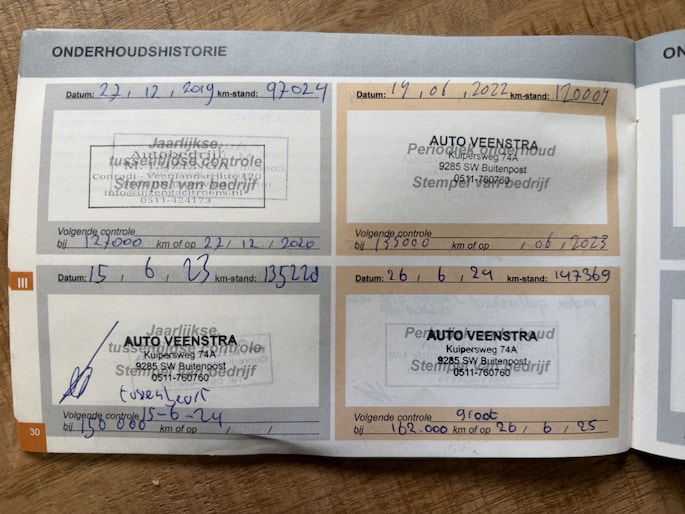 ONDERHOUDSHISTORIE
ON
Datum: 27, 12, 2019 km-stand: 97024
Jaarlijkse
Autobedrijf
tussentijdse controle
Stempel van bedrijf
0511-424173
Volgende controle
bij 127000 km of op 22/12/2020
Datum: 14, 06, 2022 km-stand: 120009
AUTO VEENSTRA
Periodiek onderhoud
Kuipersweg 74A
9285 SW Buitenpost
Stempel van bedrijf
0511-760760
Volgende controle
bij 135000 km of op , 06, 2023
III
Datum: 15, 6, 23 km-stand: 135228
Jaarlijkse
AUTO VEENSTRA
tussentijdse controle
Kuipersweg 74A
9285 SW Buitenpost
Stempel van bedrijf
0511-760760
tussenbeurt
Volgende controle 15-6-24
bij 150 000 km of op
Datum: 26, 6, 24 km-stand: 147369
Periodiek onderhoud
AUTO VEENSTRA
Kuipersweg 74A
9285 SW Buitenpost
Stempel van bedrijf
0511-760760
Volgende controle groot
bij 162.000 km of op 26, 6, 25
30